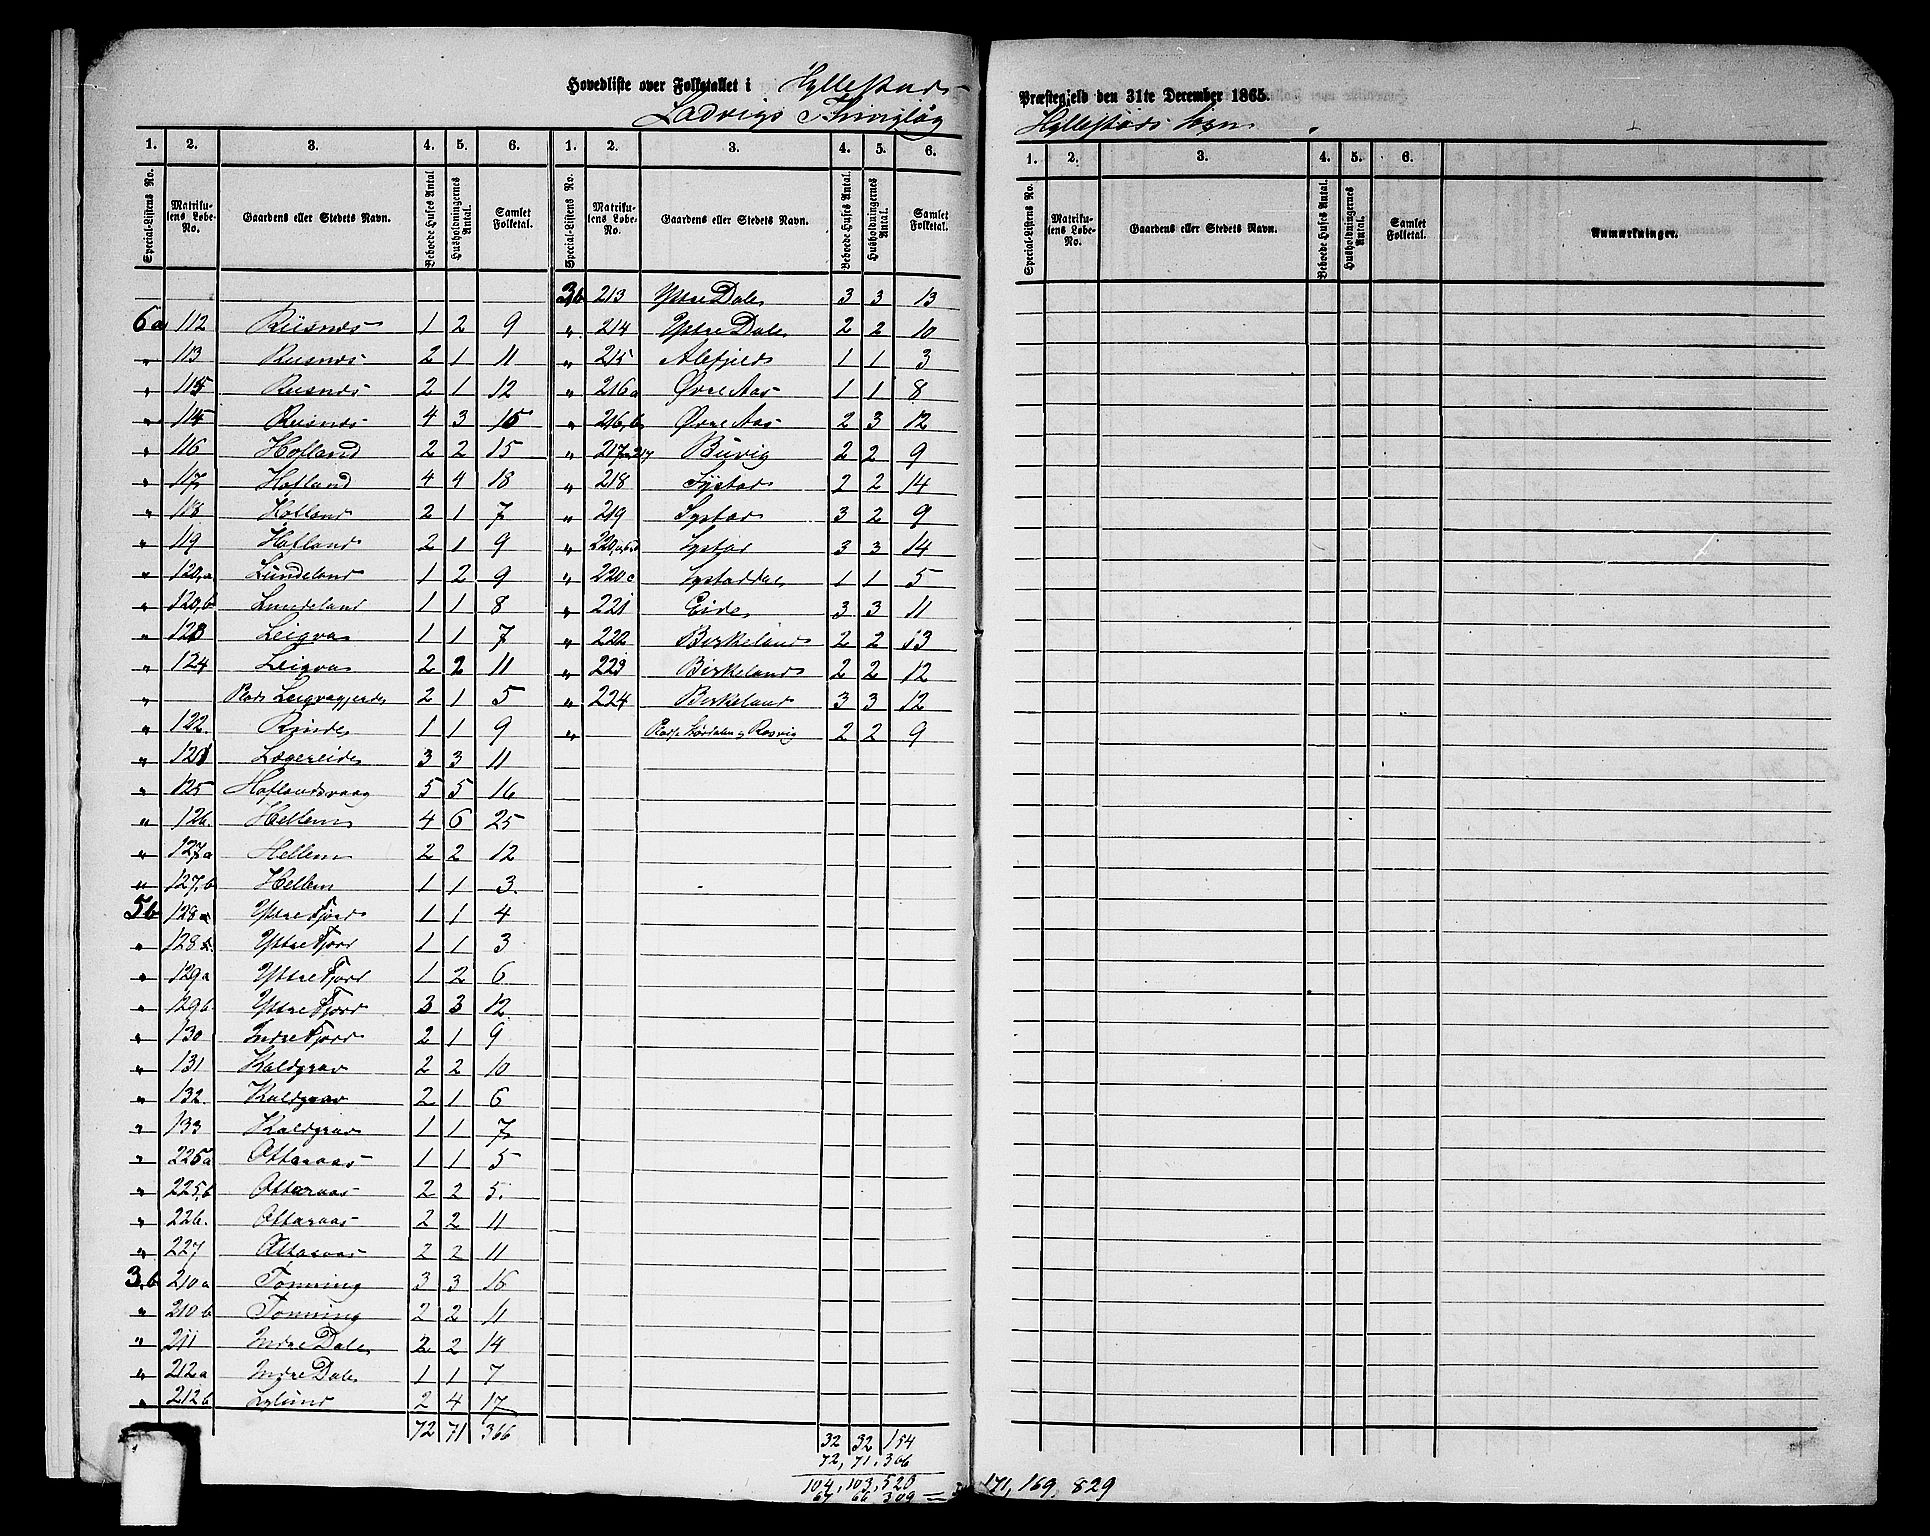 Hovedliste over Folketallet i Hyllestads
Ladvigs Thinglag
1. 2. 3. 4. 5. 6. 1. 2. 3. 4. 5. 6.
Special-Listens No. Matrikulens Løbe-No. Gaardens eller Stedets Navn. Beboede Huses Antal Husholdningernes Antal. Samlet Folketal. Special-Listens No. Matrikulens Løbe-No. Gaardens eller Stedets Navn. Beboede Huses Antal. Husholdningernes Antal. Samlet Folketal.
6a 112 Risnes 1 2 9
„ 113 Risnes 2 1 11
„ 114 Risnes 2 1 12
„ 115 Risnes 4 3 15
„ 116 Hofland 2 2 15
„ 117 Hofland 4 4 18
„ 118 Hofland 2 1 7
„ 119 Hofland 2 1 9
„ 120,a Lundeland 1 2 9
„ 120,b Lundeland 1 1 8
„ 123 Leigva 1 1 7
„ 124 Leigva 2 2 11
„ Pads Leigvagjerde 2 1 5
„ 122. Rinde 1 1 9
„ 121 Lægereide 3 3 11
„ 125 Hoflandsvaag 5 5 16
„ 126. Hellem 4 6 25
„ 127a Hellem 2 2 12
„ 127,b Hellem 1 1 3.
5b 128a Yttre Fjord 1 1 4
„ 128b. Yttre Fjord 1 1 3
„ 129a Yttre Fjord 1 2 6
„ 129b. Yttre Fjord 3 3 12.
„ 130 Indre Fjord 2 1 9
„ 131 Kaldgrav 2 2 10
„ 132. Kaldgrav 2 1 6
„ 133 Kaldgrav 1 1 7
„ 225a Otteraas 1 1 5
„ 225,b Otteraas 2 2 5.
„ 226. Otteraas 2 2 11
„ 227 Otteraas 2 2 11
3,b 210a Tonning 3 3 16
„ 210b Tonning 2 2 11
„ 211 Indre Dale 2 2 14
„ 212a Indre Dale 1 1 7
„ 212b Lølund 2 4 17
72 71 366
3b 213 Yttre Dale 3 3 13
„ 214 Yttre Dale 2 2 10
„ 215 Alefjeld 1 1 3
„ 216a Øvre Aas 1 1 8
„ 216,b Øvre Aas 2 3 12
„ 217 Buvig 2 2 9
„ 218 Systad 2 2 14
„ 219 Systad 3 2 9
„ 220,a,b,d Systad 3 3 14
„ 220c Systaddal 1 1 5
„ 221 Eide 3 3 11
„ 222 Birkeland 2 2 13
„ 223 Birkeland 2 2 12
„ 224 Birkeland 3 3 12
„ Rosvig 2 2 9
32 32 154
72, 71, 366
104, 103, 520
67 66 309 =
Præstegjeld den 31te December 1865.
Hyllestads Sogn
1. 2. 3. 4. 5. 6.
Special-Listens No. Matrikulens Løbe-No. Gaardens eller Stedets Navn. Beboede Huses Antal. Husholdningernes Antal. Samlet Folketal. Anmærkninger.
171, 169, 829